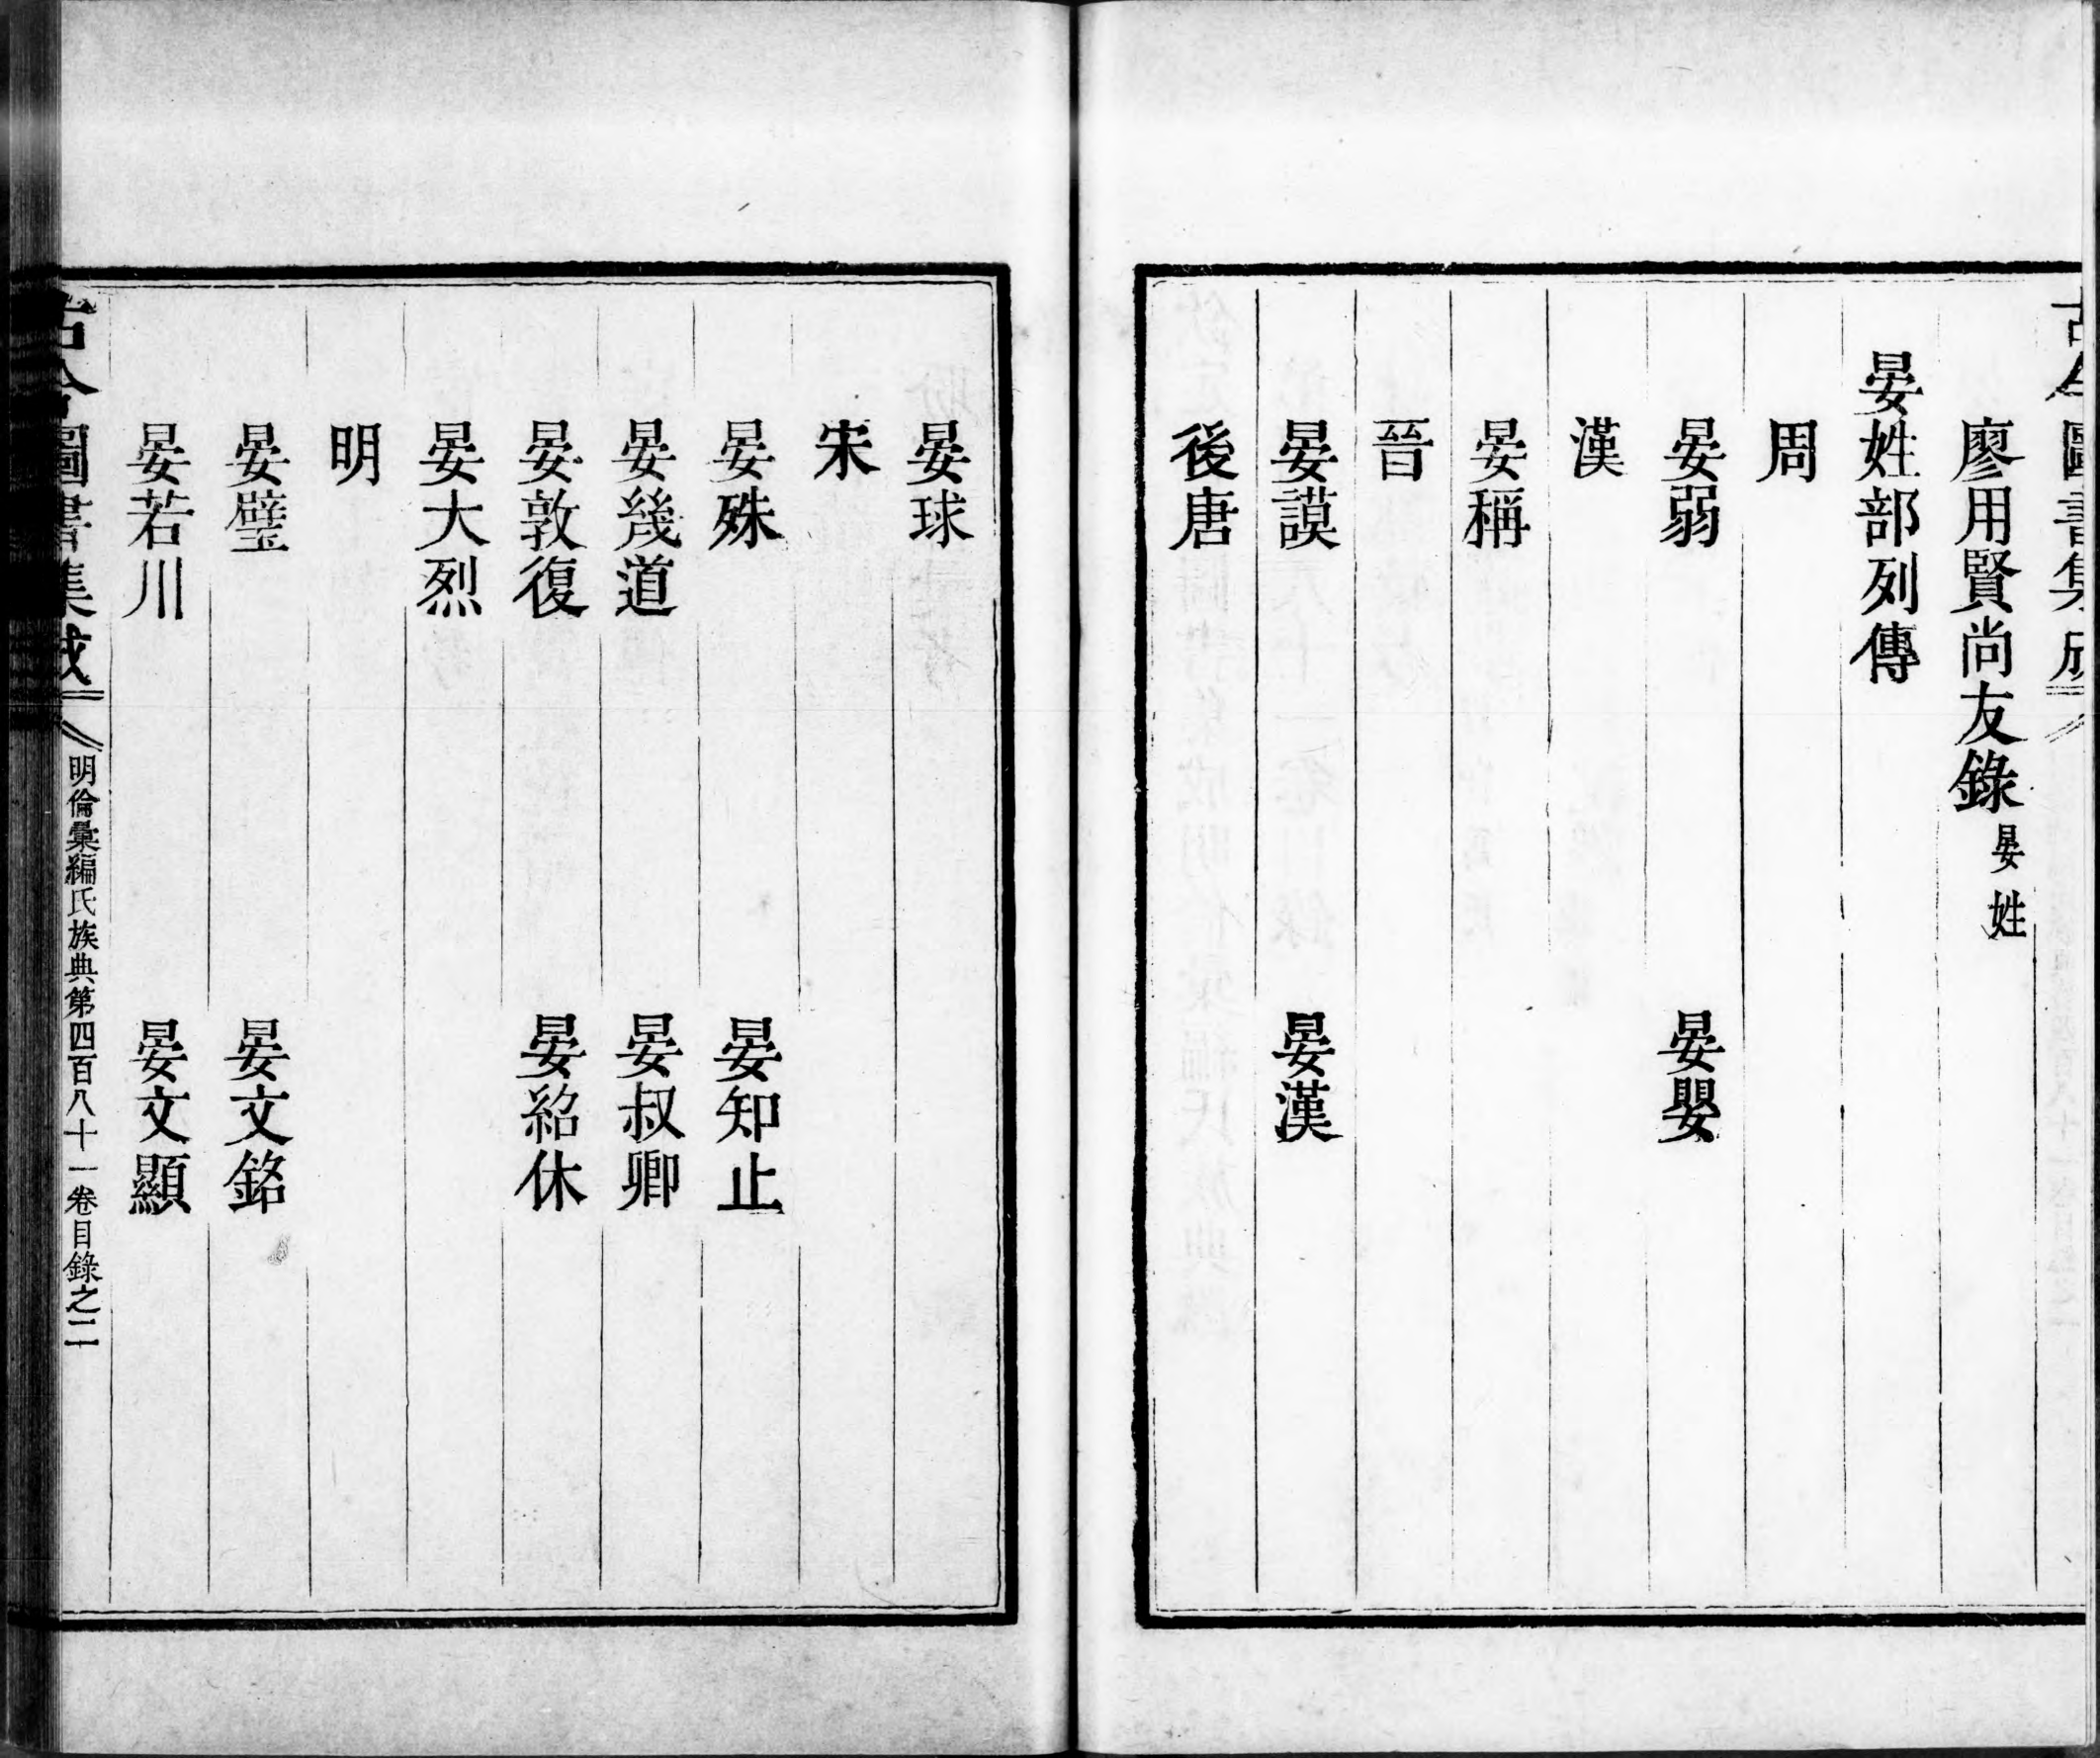 古今圖書集成
廖用賢尚友錄 晏姓
晏姓部列傳
周
晏弱 晏嬰
漢
晏稱
晉
晏謨 晏漢
後唐
晏球
宋
晏殊 晏知止
晏幾道 晏叔卿
晏敦復 晏紹休
晏大烈
明
晏璧 晏文銘
晏若川 晏文顯
古今圖書集成 明倫彙編氏族典第四百八十一卷目錄之二